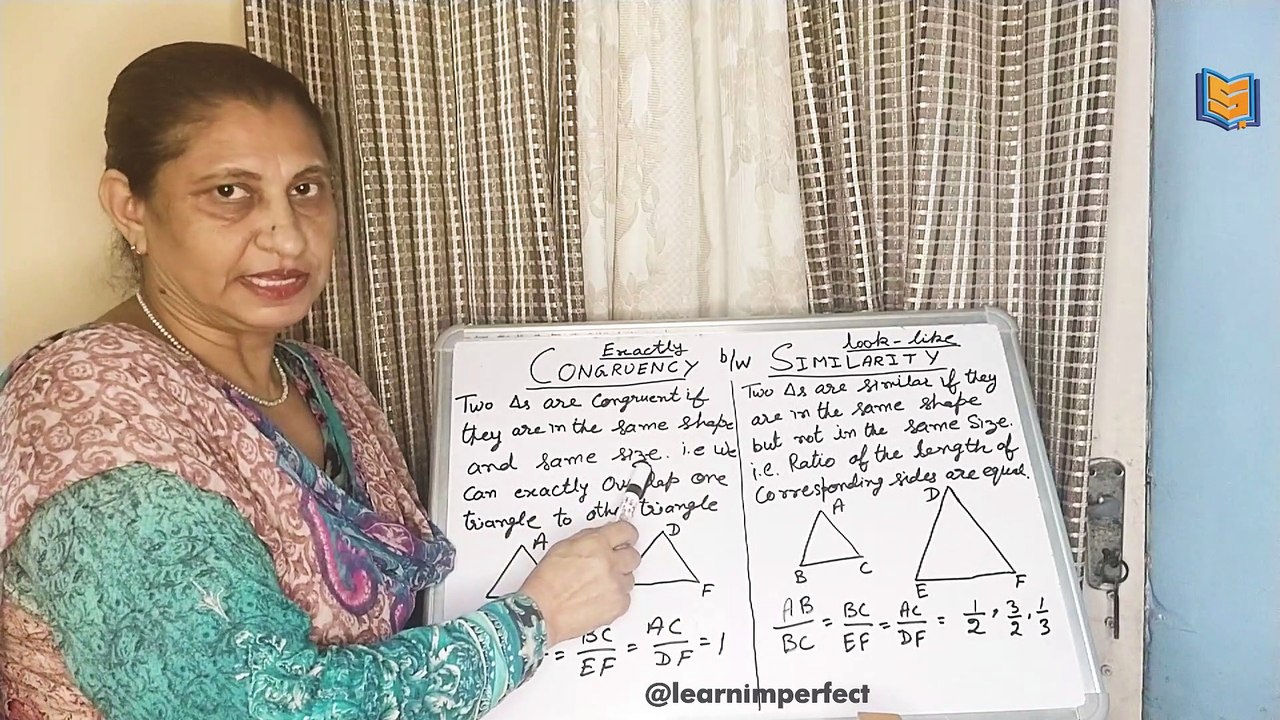 Exactly
CONGRUENCY b/w
Two Δs are congruent if
they are in the same shape
and same size. i.e we
can exactly one
triangle to triangle
A
D
F
= BC/EF = AC/DF = 1
look-like
SIMILARITY
Two Δs are similar if they
are in the same shape
but not in the same size.
i.e. Ratio of the length of
corresponding sides are equal.
A
B
C
D
E
F
AB/BC = BC/EF = AC/DF = 1/2, 3/2, 1/3
@learnimperfect